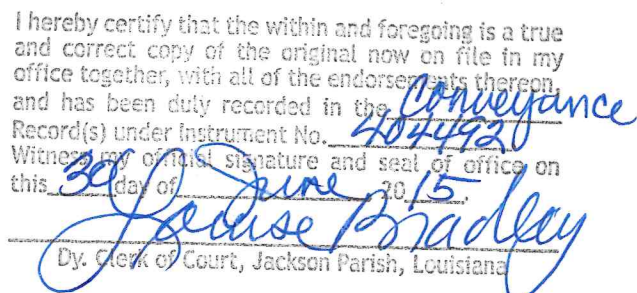 I hereby certify that the within and foregoing is a true
and correct copy of the original now on file in my
office together, with all of the endorsements thereon,
and has been duly recorded in the Conveyance
Record(s) under Instrument No. 404492
Witness my official signature and seal of office on
this 30 day of June 2015.
Louise Bradley
Dy. Clerk of Court, Jackson Parish, Louisiana